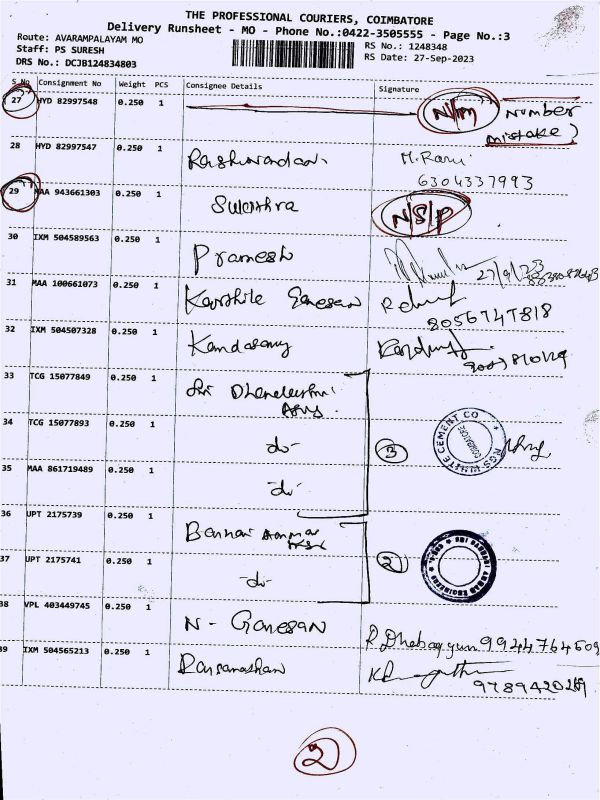 THE PROFESSIONAL COURIERS, COIMBATORE
Delivery Runsheet - MO - Phone No.:0422-3505555 - Page No.:3
Route: AVARAMPALAYAM MO
RS No.: 1248348
Staff: PS SURESH
RS Date: 27-Sep-2023
DRS No.: DCJB124834803
S.No Consignment No Weight PCS Consignee Details Signature
27 HYD 82997548 0.250 1 N/M Number
mistake)
28 HYD 82997547 0.250 1 M. Rani
6304337993
29 MAA 943661303 0.250 1 N/S/P
30 IXM 504589563 0.250 1 Pramesh 27/9/23
31 MAA 100661073 0.250 1 Ganesan
8056747818
32 IXM 504507328 0.250 1 Kandasamy
33 TCG 15077849 0.250 1 Sri
34 TCG 15077893 0.250 1 -do- 3 WHITE CEMENT CO
COIMBATORE
35 MAA 861719489 0.250 1 -do-
36 UPT 2175739 0.250 1 Bannari Amman
37 UPT 2175741 0.250 1 -do- 2
38 VPL 403449745 0.250 1 N- Ganesan 9944764509
39 IXM 504565213 0.250 1
2